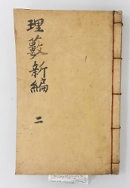 理藪新編
二